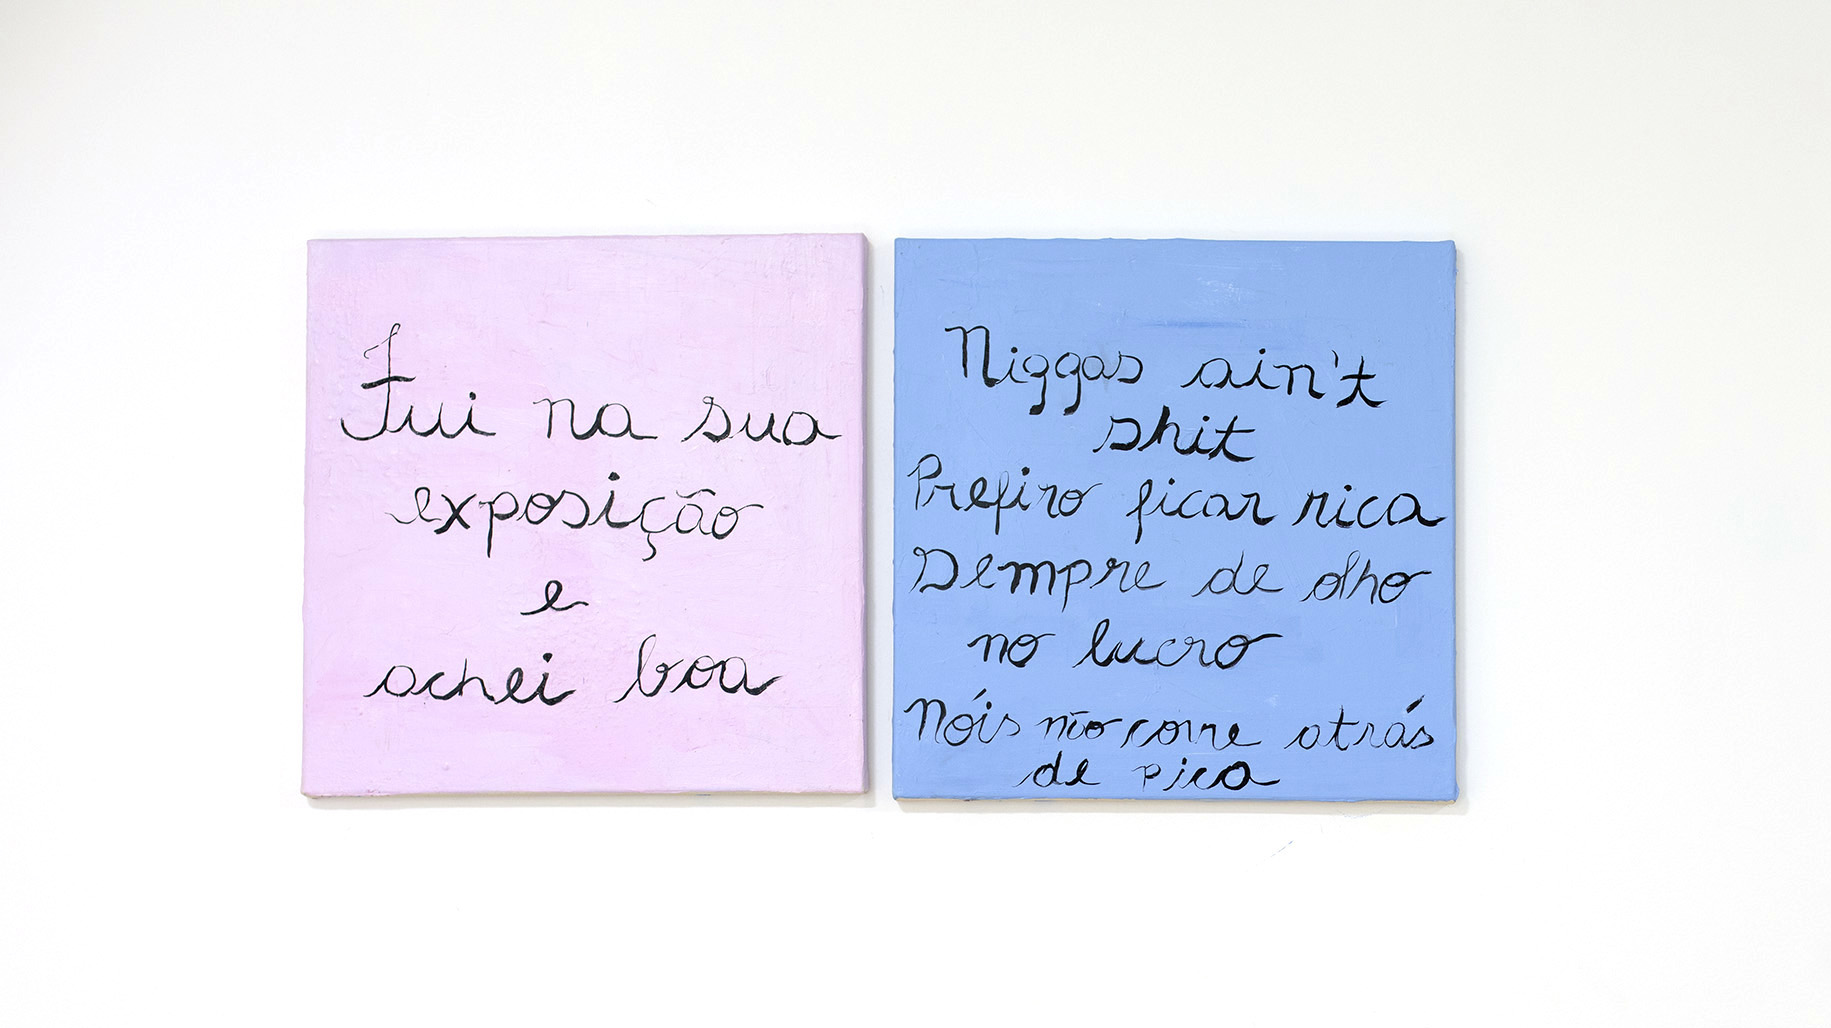 Fui na sua
exposição
e
achei boa
Niggas ain't
shit
Prefiro ficar rica
Sempre de olho
no lucro
Nóis não corre atrás
de pica